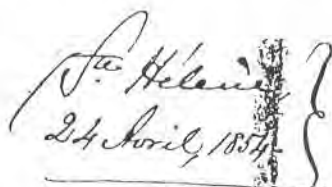 Ste Hélène
24 Avril, 1854